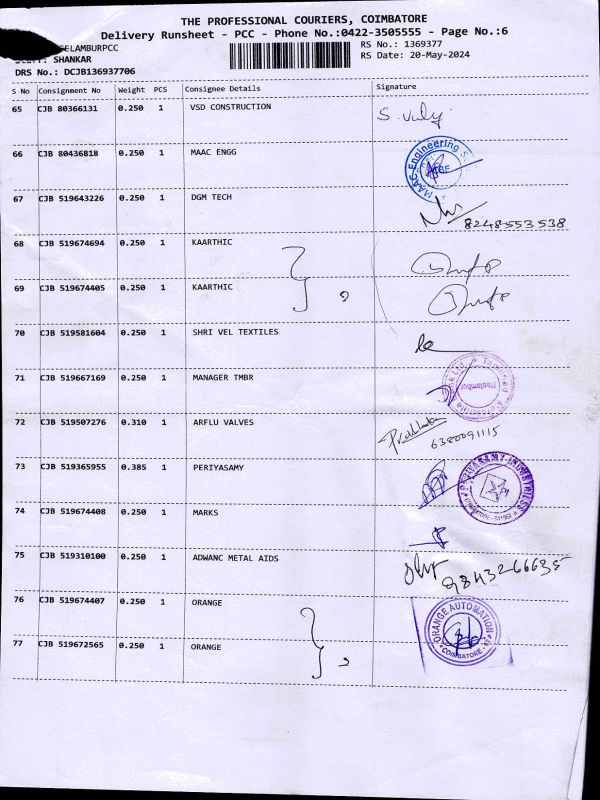 THE PROFESSIONAL COURIERS, COIMBATORE
Delivery Runsheet - PCC - Phone No.:0422-3505555 - Page No.:6
ELAMBURPCC RS No.: 1369377
Staff: SHANKAR RS Date: 20-May-2024
DRS No.: DCJB136937706
S No Consignment No Weight PCS Consignee Details Signature
65 CJB 80366131 0.250 1 VSD CONSTRUCTION
66 CJB 80436818 0.250 1 MAAC ENGG MAAC Engineering
67 CJB 519643226 0.250 1 DGM TECH 8248553538
68 CJB 519674694 0.250 1 KAARTHIC
69 CJB 519674405 0.250 1 KAARTHIC
70 CJB 519581604 0.250 1 SHRI VEL TEXTILES
71 CJB 519667169 0.250 1 MANAGER TMBR
72 CJB 519507276 0.310 1 ARFLU VALVES 6380091115
73 CJB 519365955 0.385 1 PERIYASAMY
74 CJB 519674408 0.250 1 MARKS
75 CJB 519310100 0.250 1 ADWANC METAL AIDS 9843266635
76 CJB 519674407 0.250 1 ORANGE ORANGE AUTOMATION
COIMBATORE
77 CJB 519672565 0.250 1 ORANGE